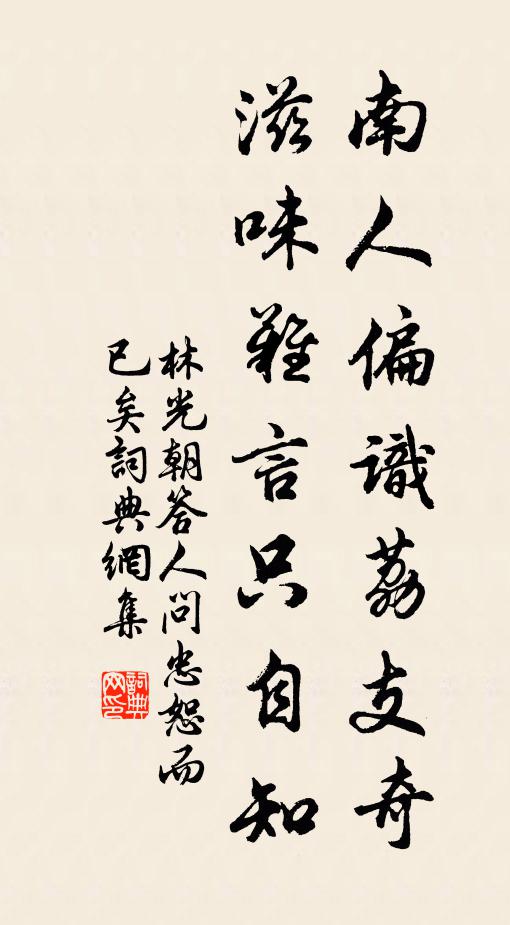 南人偏識荔支奇
滋味難言只自知
林光朝答人問忠恕而
已矣詞典網集
詞典网印